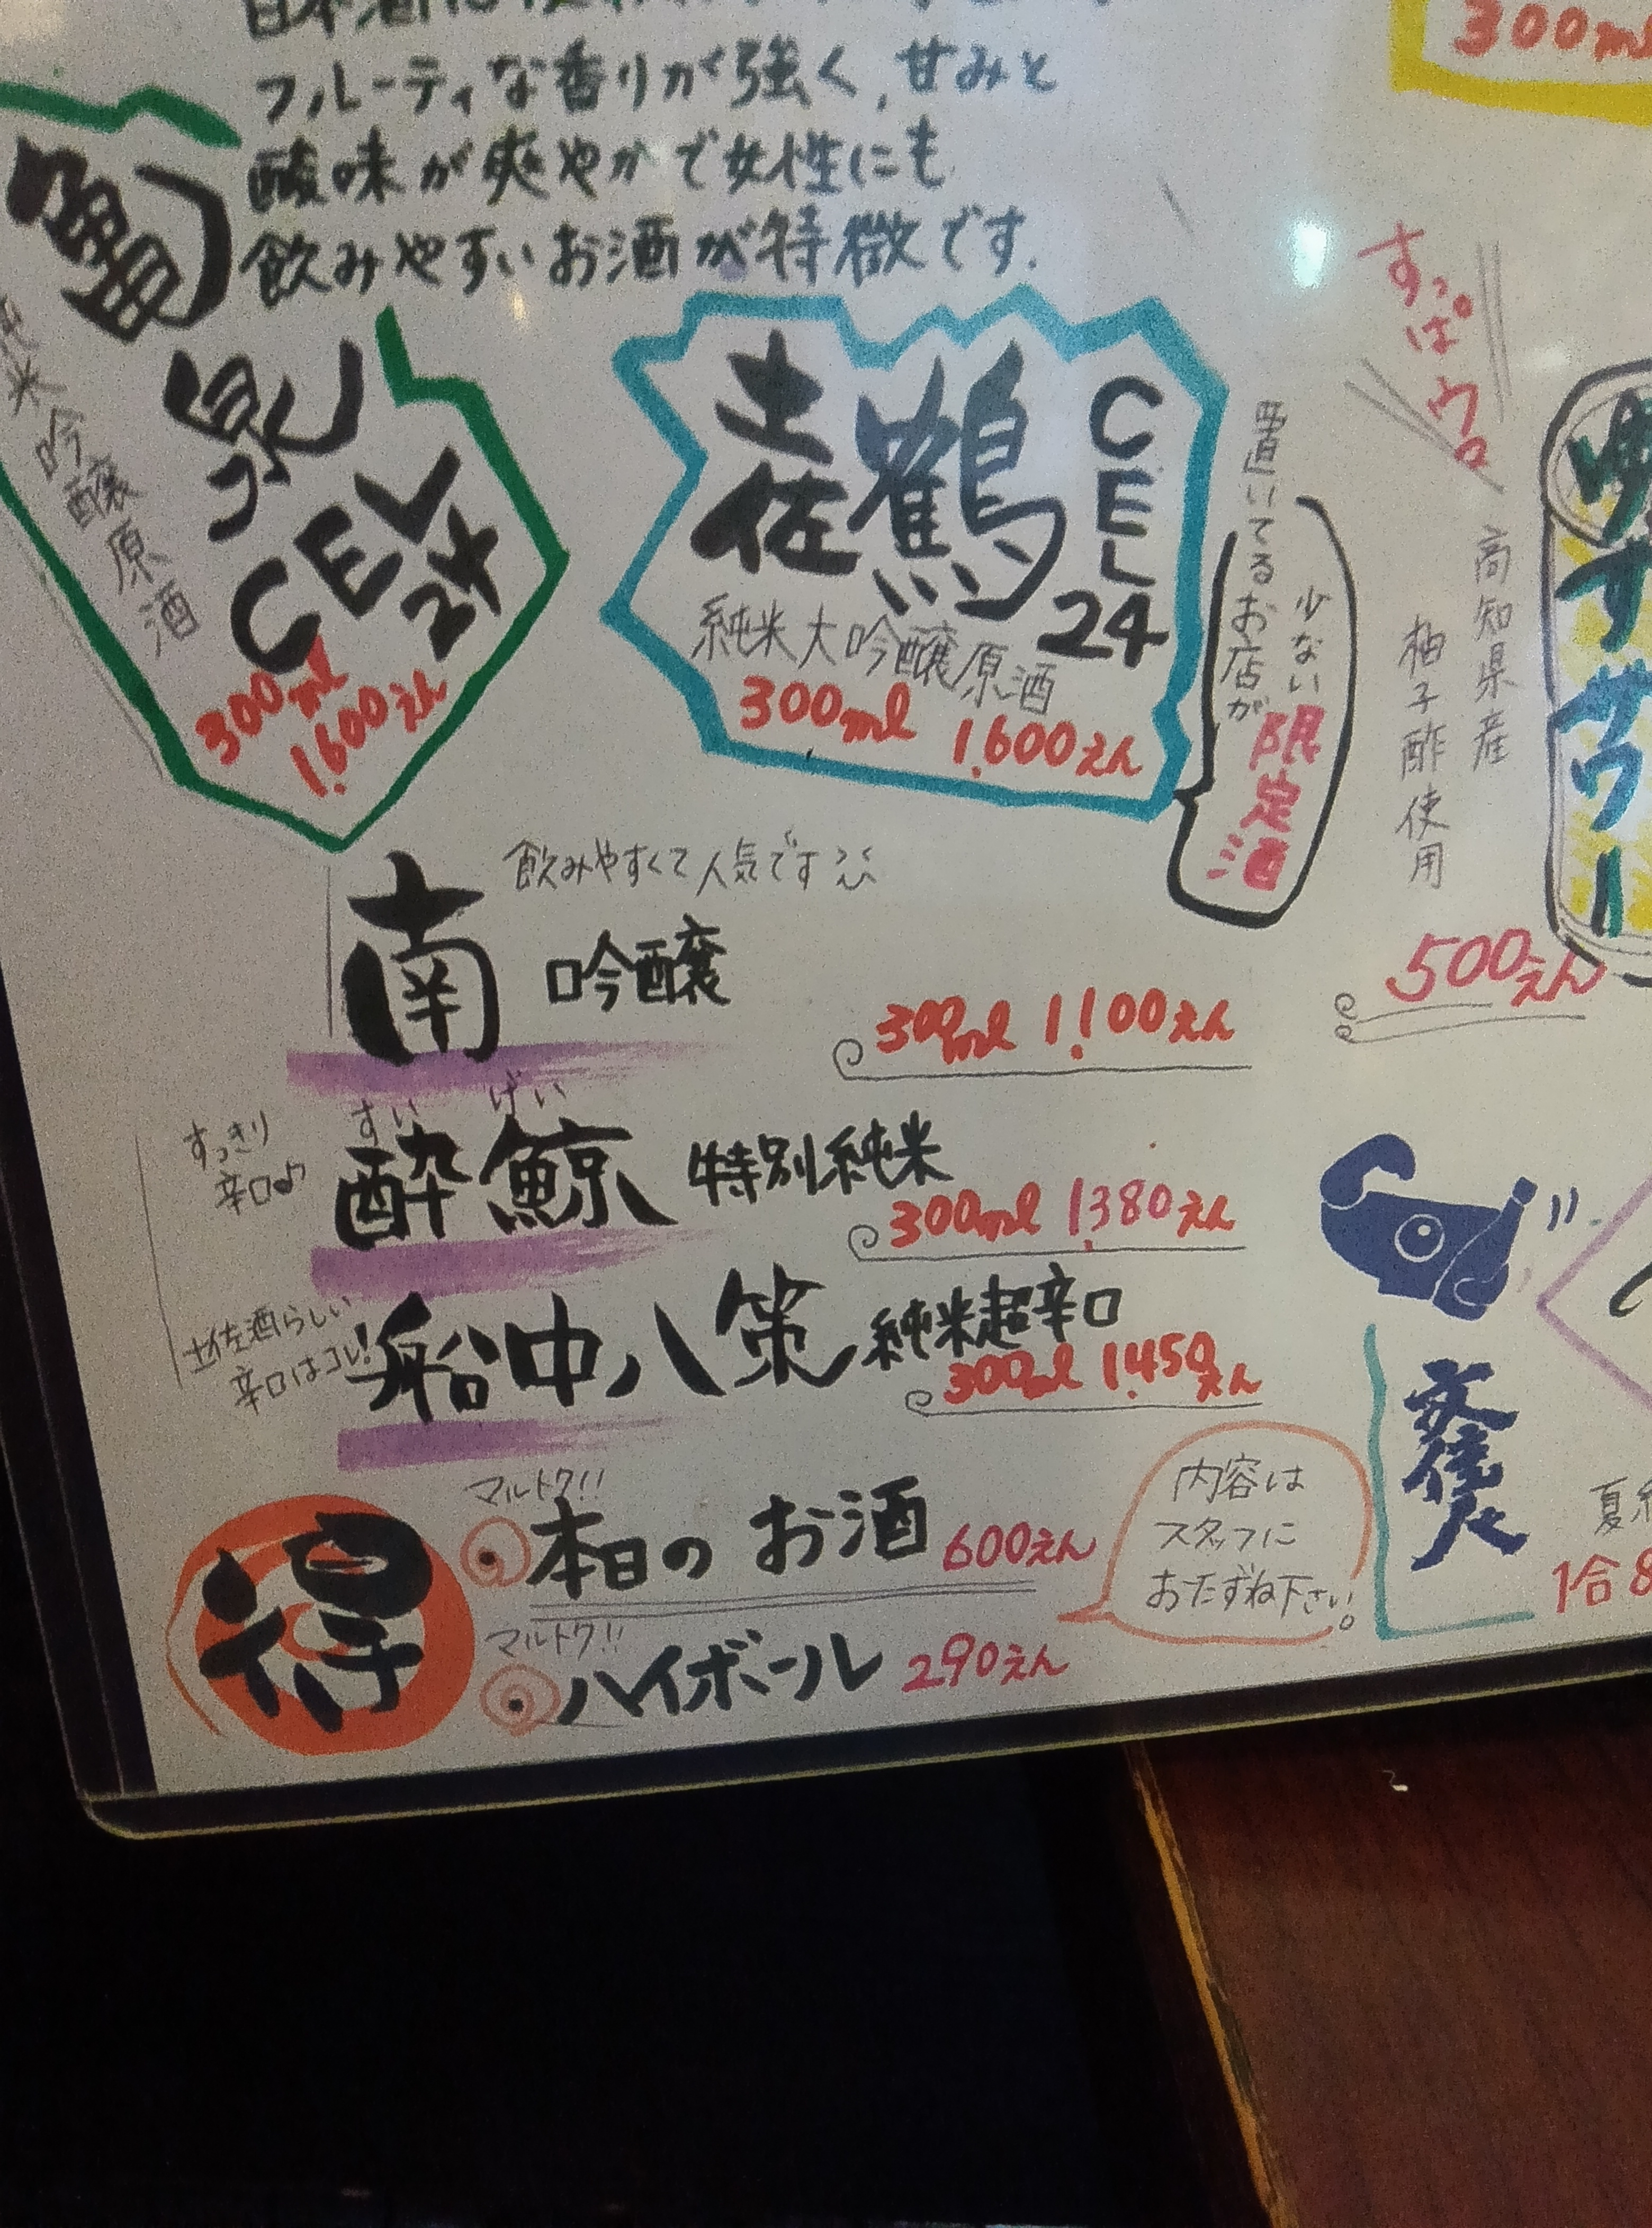 300ml
フルーティな香りが強く、甘みと
酸味が爽やかで女性にも
飲みやすいお酒が特徴です.
泉
CEL
24
米吟醸原酒
300ml
1,600えん
土佐鶴
CEL
24
純米大吟醸原酒
300ml 1,600えん
置いてるお店が
少ない限定酒
すっぱウロ
高知県産
柚子酢使用
ゆずサワー
500えん
飲みやすくて人気です
南 吟醸
300ml 1,100えん
すっきり
辛口♪
すい げい
酔鯨 特別純米
300ml 1,380えん
土佐酒らしい
辛口はコレ!
船中八策 純米超辛口
300ml 1,450えん
得
マルトク!!
本日の お酒 600えん
内容は
スタッフに
おたずね下さい。
マルトク!!
ハイボール 290えん
文佳人
1合